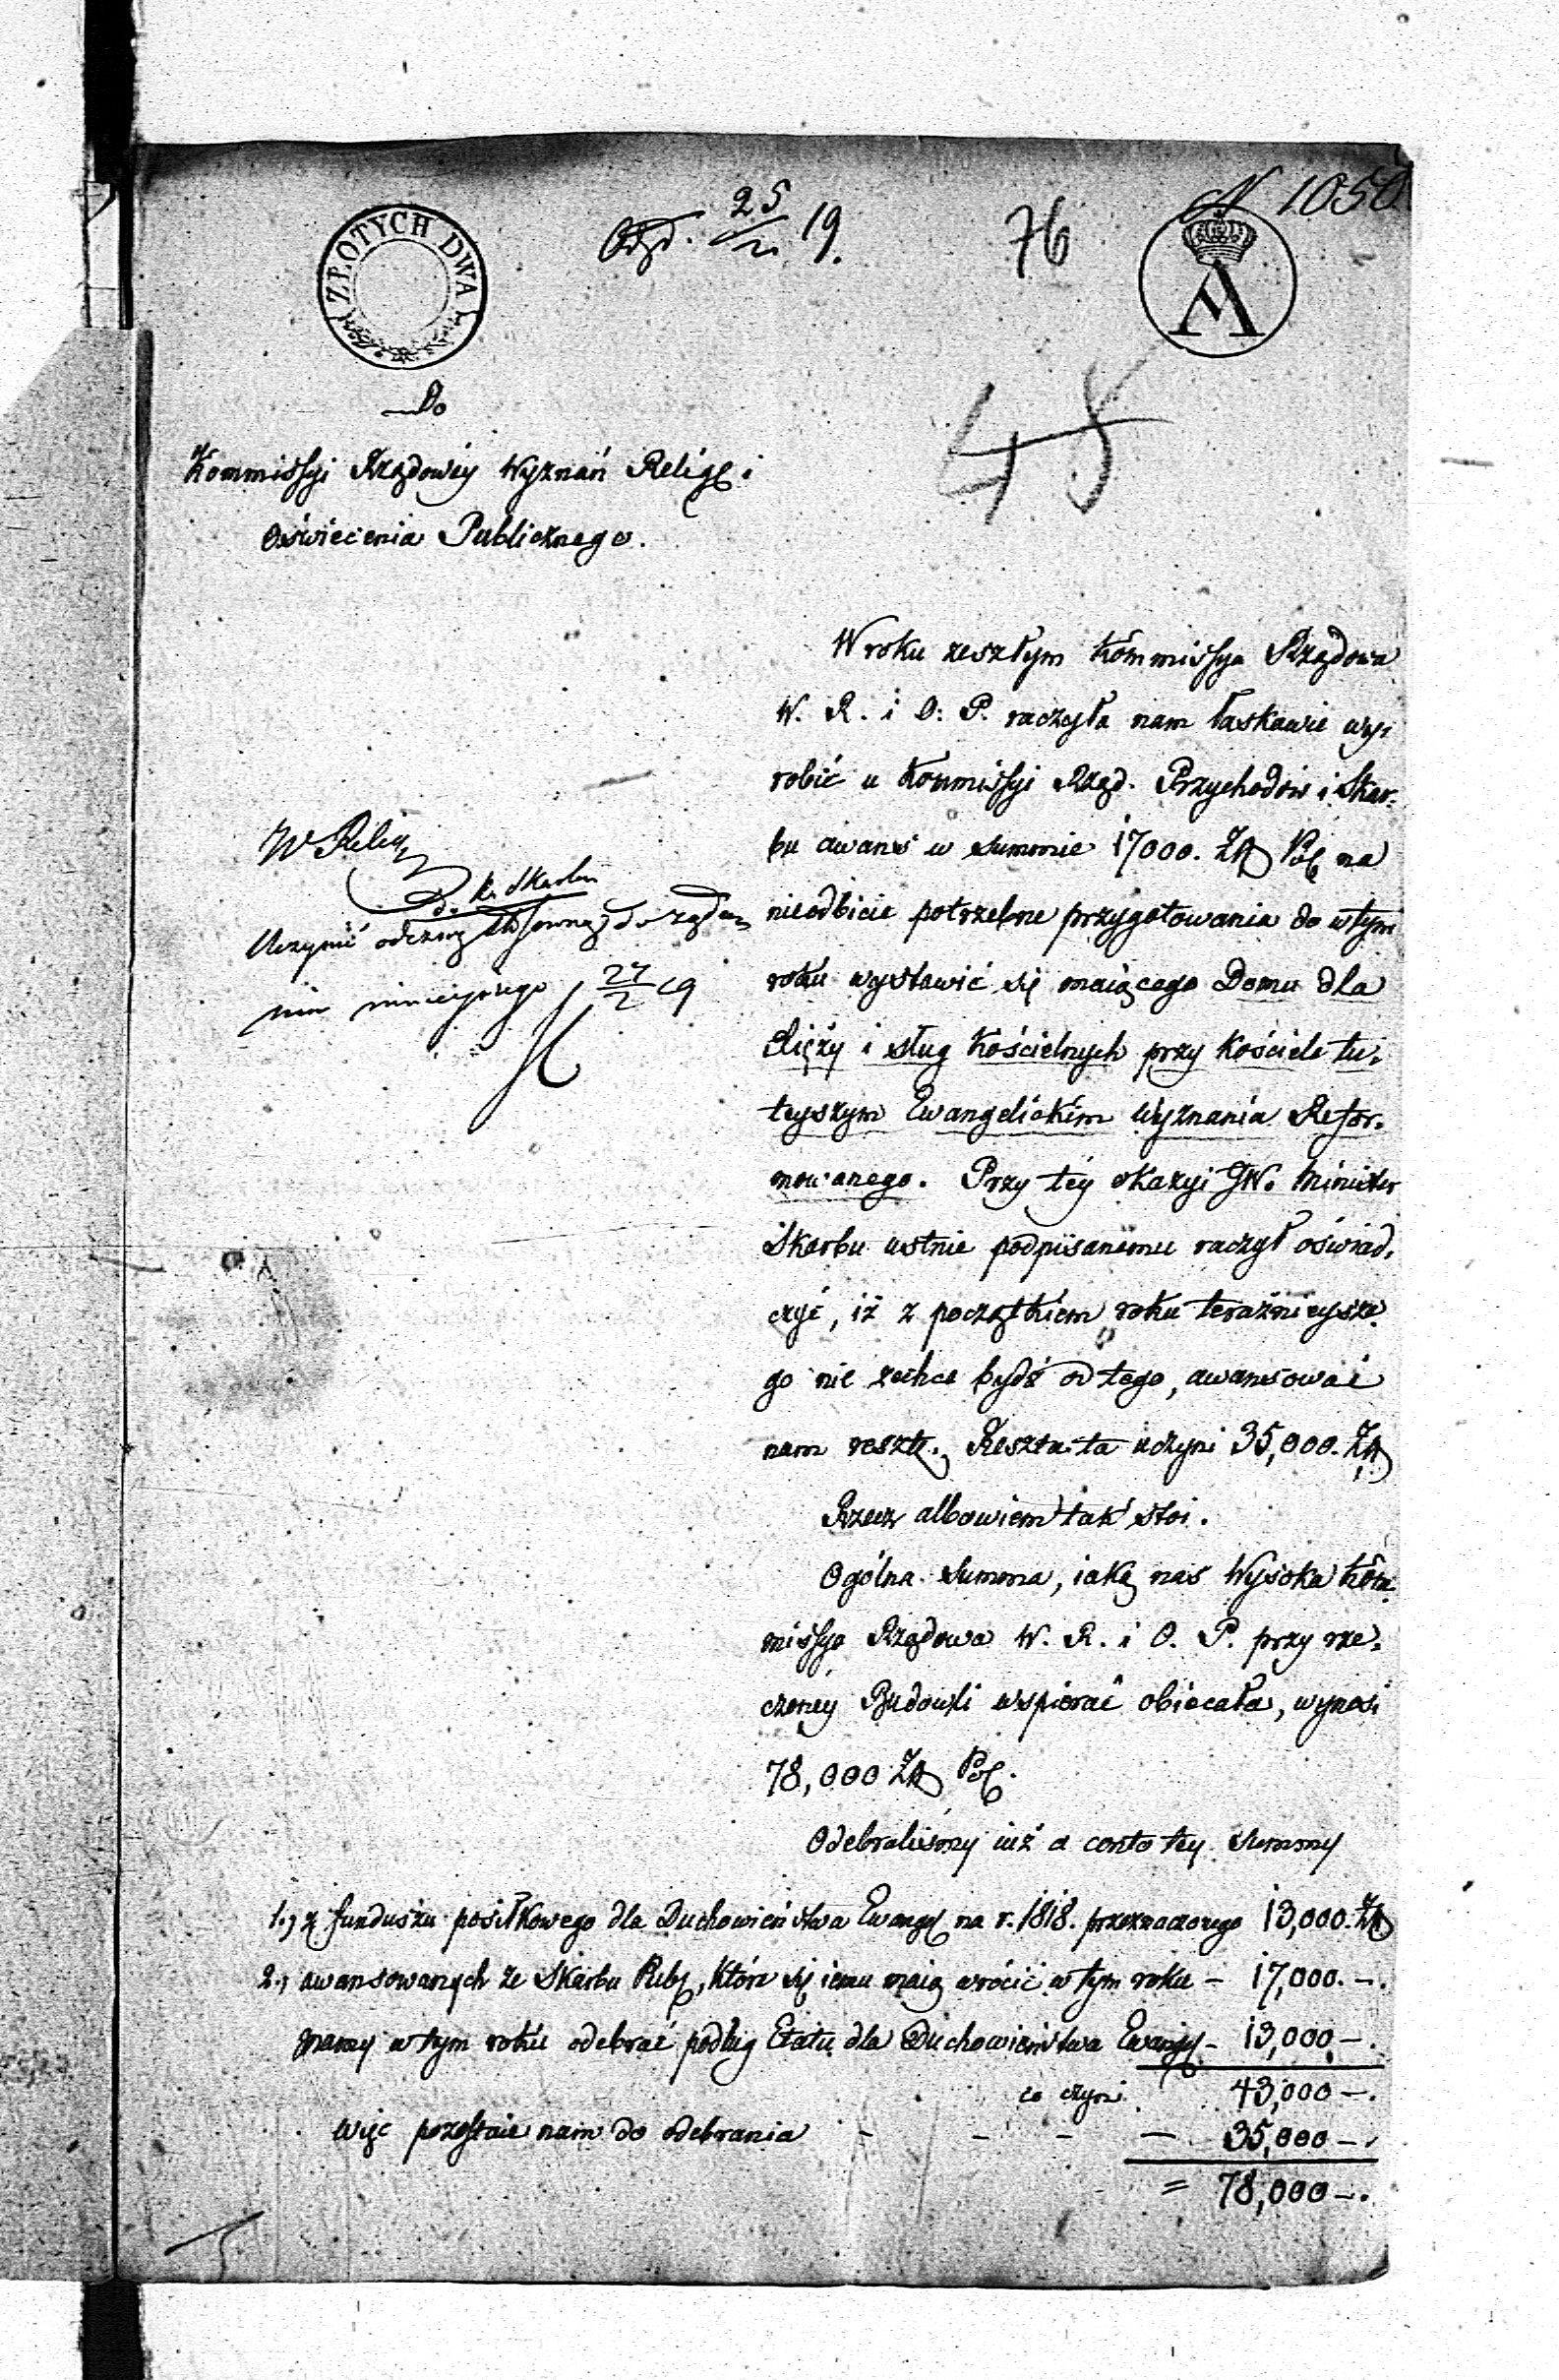 N 1050
ZŁOTYCH DWA
25/2 19.
76
A
48
Do
Kommissyi Rządowéy Wyznań Relig i
Oświecenia Publicznego.
W roku zeszłym Kommissya Rządowa
W. R. i O: P. raczyła nam łaskawie wy-
robić u Kommissyi Rząd. Przychodów i Skar-
bu awans w summie 17000. Zł Pol na
nieodbicie potrzebne przygotowania do w tym
roku wystawić się maiącego Domu dla
Xięży i sług Kościelnych przy Kościele tu-
teyszym Ewangelickim Wyznania Refor-
mowanego. Przy téy okazyi JW. Minister
Skarbu ustnie podpisanemu raczył oświad-
czyć, iż z początkiem roku teraźnieysze-
go nie zechce bydź od tego, awansować
nam resztę. Reszta ta uczyni 35,000. Zł
Rzecz albowiem tak stoi.
Ogólna Summa, iaką nas Wysoka Kom-
missya Rządowa W. R. i O. P. przy rze-
czonéy Budowli wspierać obiecała, wynosi
78,000 Zł Pol.
Odebraliśmy iuż a conto tey Summy
1., z funduszu posiłkowego dla Duchowieństwa Ewang na r. 1818. przeznaczonego 13,000. Zł
2., awansowanych ze Skarbu Publ, które się iemu maią wrócić w tym roku - 17,000. -.
mamy w tym roku odebrać podług Etatu dla Duchowieństwa Ewang - 13,000 -.
co czyni 43,000 -.
więc pozostaie nam do odebrania - - - - 35,000 -.
= 78,000 -.
W Relig
d. K. Skarbu
Uczynić odezwę stosowną do żąda-
nia ninieyszego 27/2 19